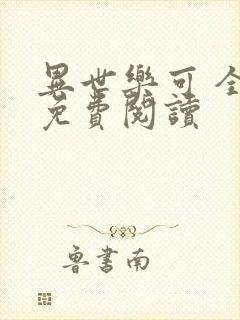 異世樂可 全
免費閱讀
魯書南